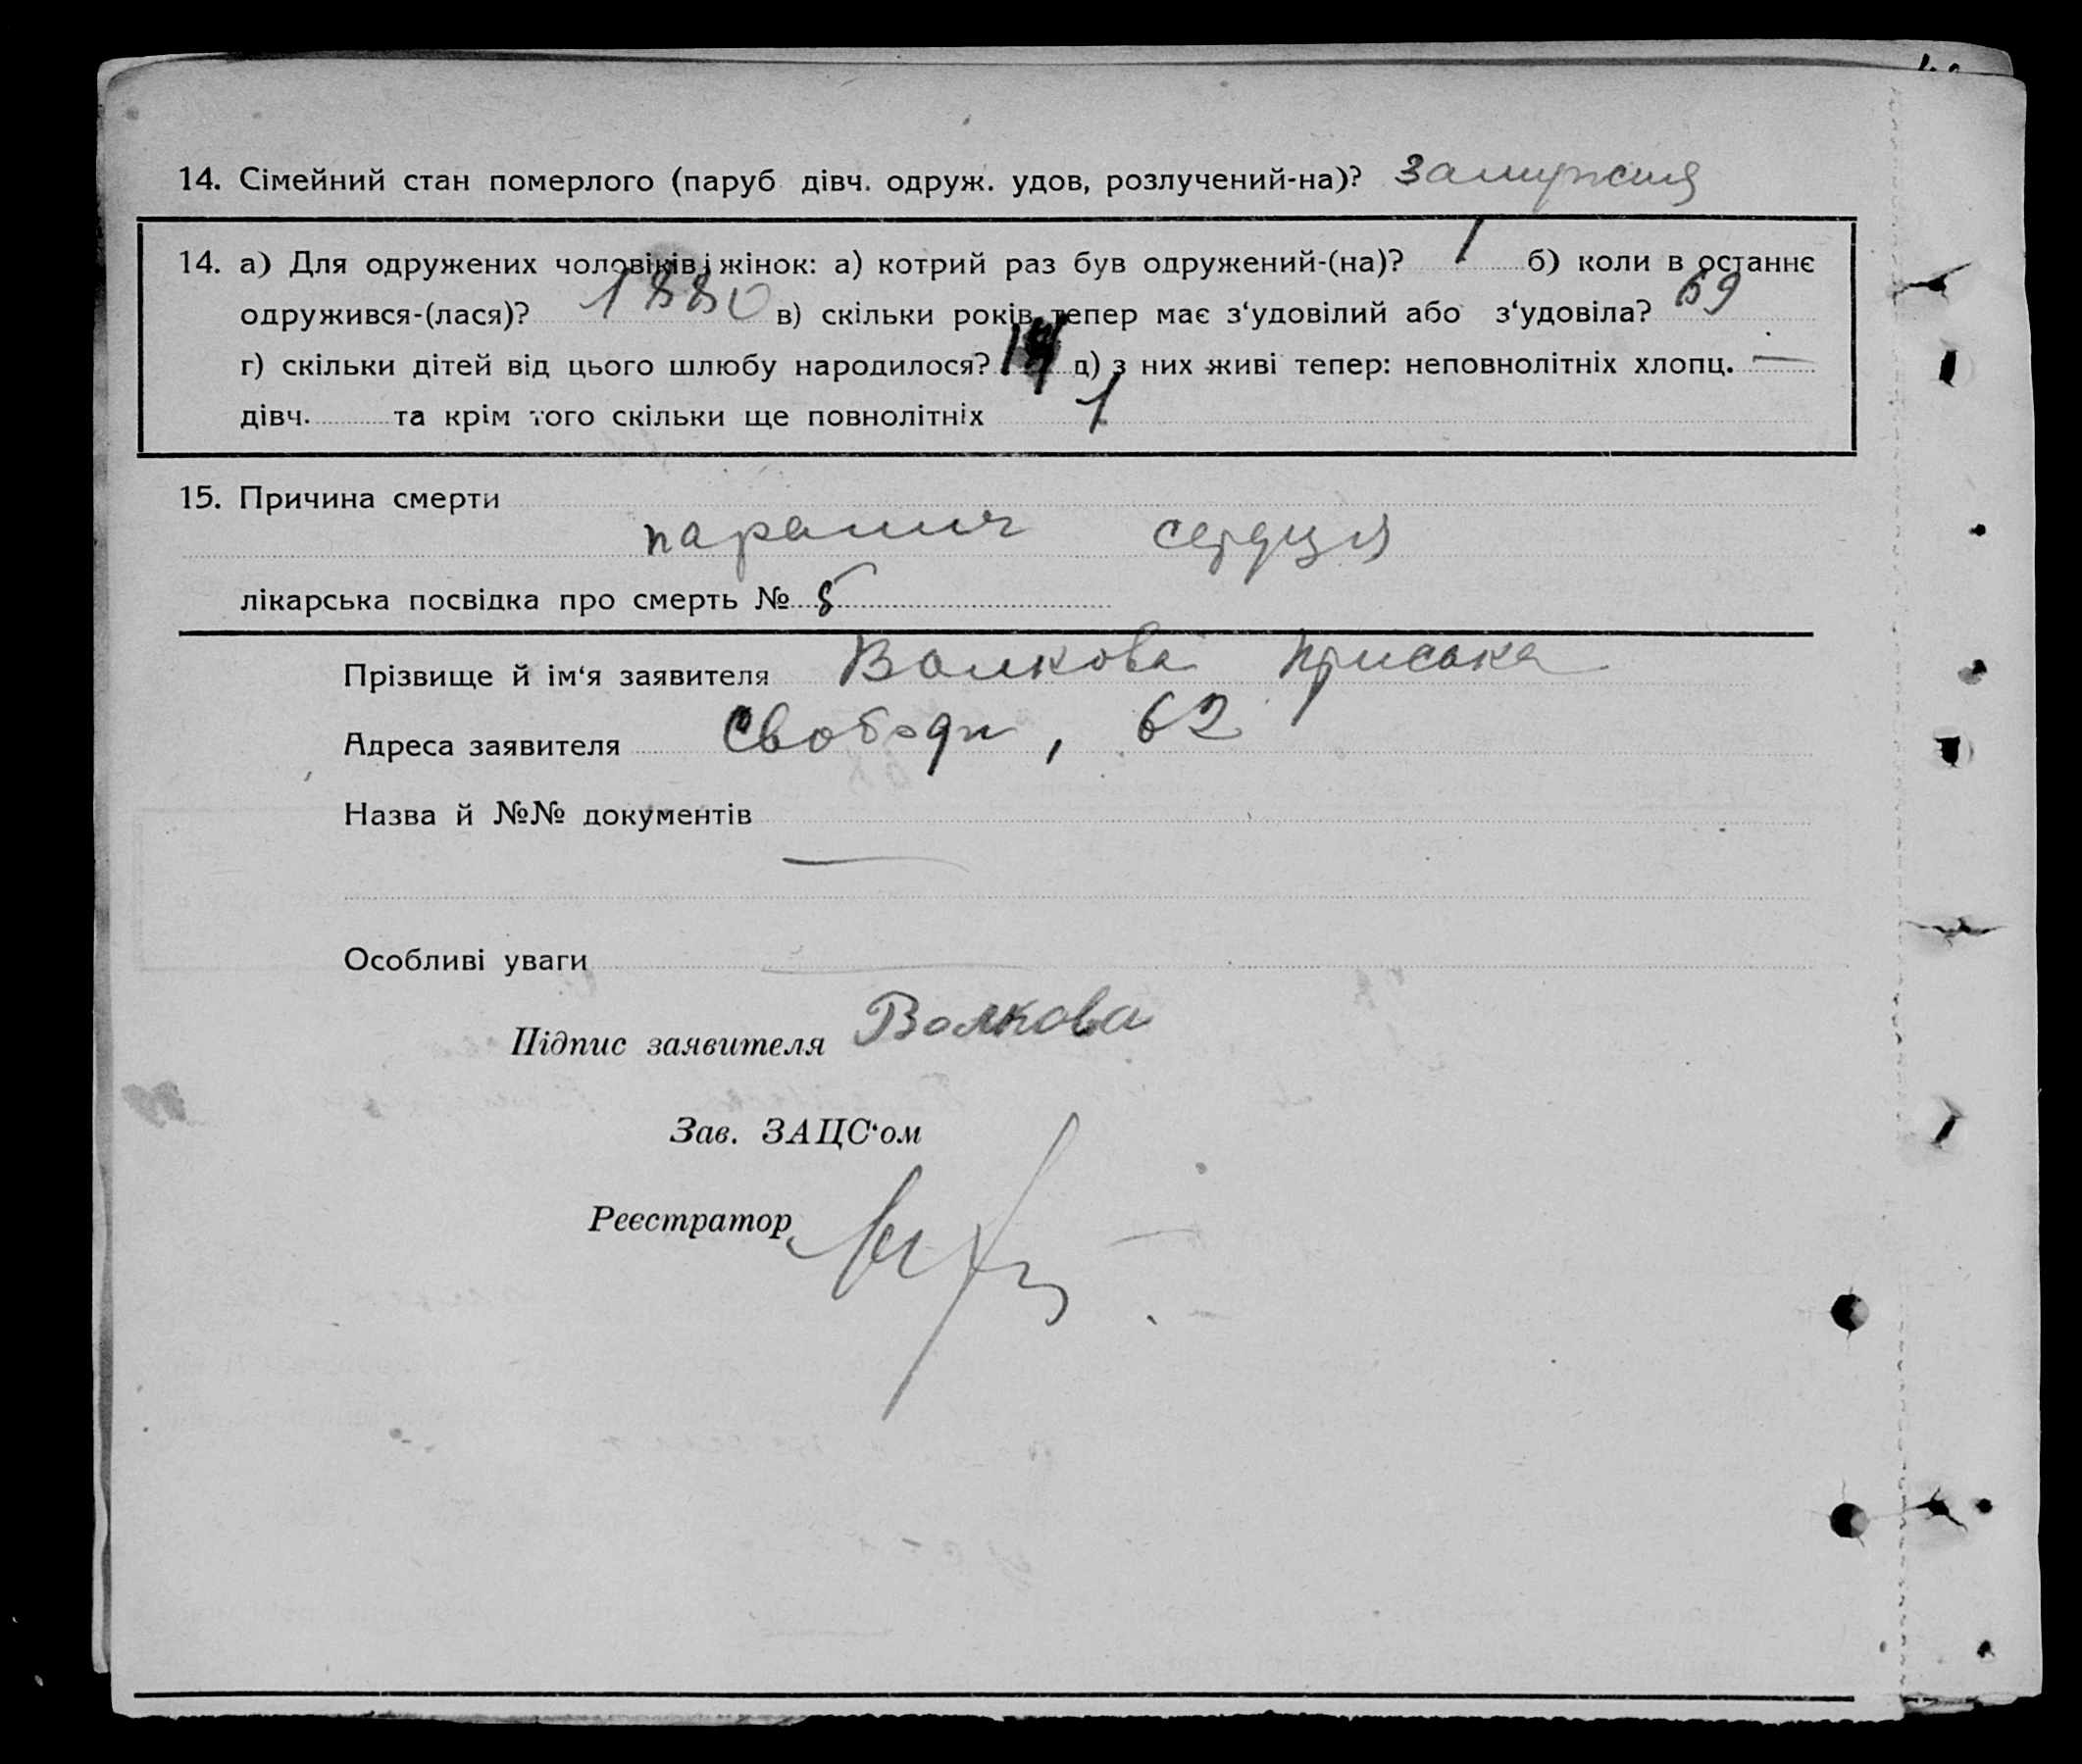 14. Сімейний стан померлого (паруб дівч. одруж. удов, розлучений-на)? Замужня
14. а) Для одружених чоловіків і жінок: а) котрий раз був одружений-(на)? 1 б) коли в останнє
одружився-(лася)? 1880 в) скільки років тепер має з‘удовілий або з‘удовіла? 69
г) скільки дітей від цього шлюбу народилося? д) з них живі тепер: неповнолітніх хлопц. —
дівч. та крім того скільки ще повнолітніх 1
15. Причина смерти
параліч сердця
лікарська посвідка про смерть № 5
Прізвище й ім‘я заявителя Волкова Приська
Адреса заявителя Свободи, 62
Назва й №№ документів
—
Особливі уваги —
Підпис заявителя Волкова
Зав. ЗАЦС‘ом
Реєстратор